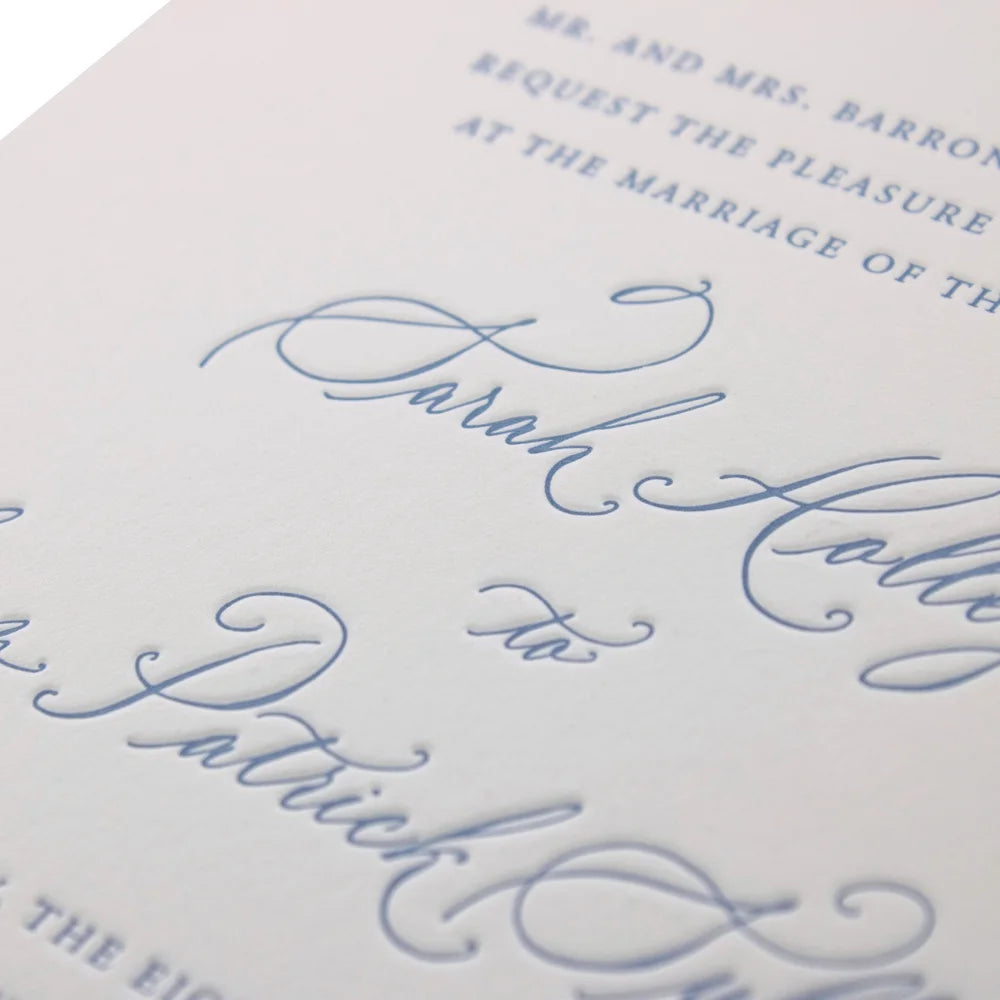 MR. AND MRS. BARRON
REQUEST THE PLEASURE
AT THE MARRIAGE OF
Sarah Holley
to
Patrick
THE